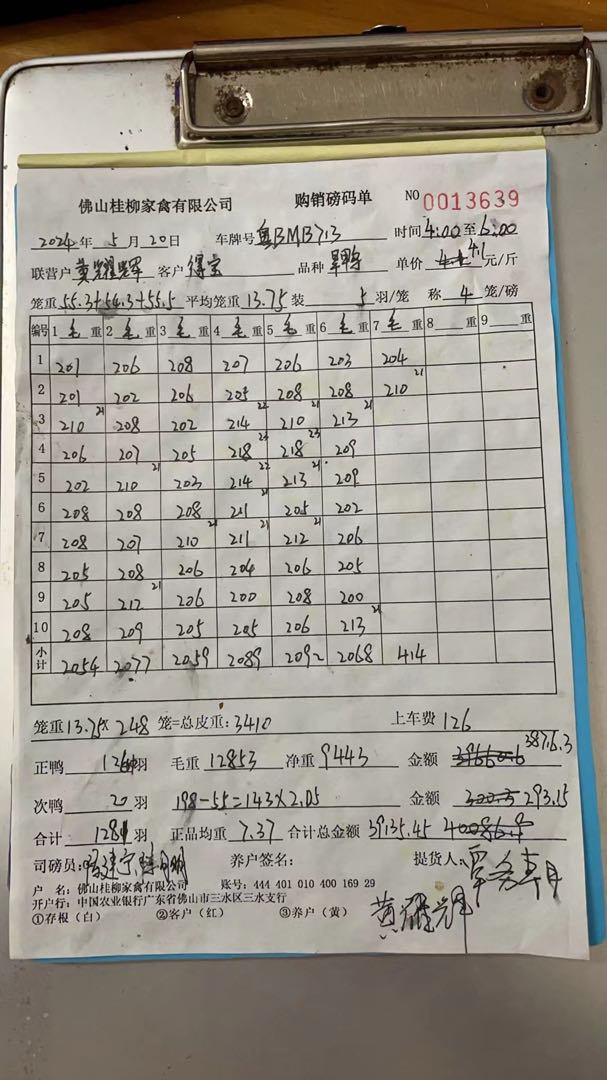 佛山桂柳家禽有限公司 购销磅码单 NO 0013639
2024年 5月 20日 车牌号 粤BMB713 时间 4:00至6:00
联营户 黄耀辉 客户 得宝 品种 单价 4.1 元/斤
笼重 55.3+54.3+55.5 平均笼重 13.75 装 5 羽/笼 称 4 笼/磅
编号 1 毛 重 2 毛 重 3 毛 重 4 毛 重 5 毛 重 6 毛 重 7 毛 重 8 重 9 重
1 201 206 208 207 206 203 204
2 201 202 206 205 208 208 210 21
3 210 21 208 202 214 22 210 21 213 21
4 206 207 205 218 22 218 23 209
5 202 210 21 203 214 22 213 21 209
6 208 208 208 211 21 205 202
7 208 207 210 21 211 21 212 21 206
8 205 208 206 204 206 205
9 205 212 21 206 200 208 200
10 208 209 205 205 206 213 21
小计 2054 2077 2059 2089 2092 2068 414
笼重 13.75× 248 笼=总皮重: 3410 上车费 126
正鸭 羽 毛重 12853 净重 9443 金额 38716.3
次鸭 20 羽 198-55=143×2.05 金额 293.15
合计 1281 羽 正品均重 7.37 合计总金额 39135.45
司磅员: 养户签名: 提货人:
户 名: 佛山桂柳家禽有限公司 账号: 444 401 010 400 169 29
开户行: 中国农业银行广东省佛山市三水区三水支行
①存根（白） ②客户（红） ③养户（黄） 黄耀辉